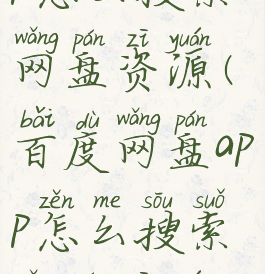 wǎng pán zī yuán
网盘资源(
bǎi dù wǎng pán
百度网盘ap
zěn me sōu suǒ
p怎么搜索